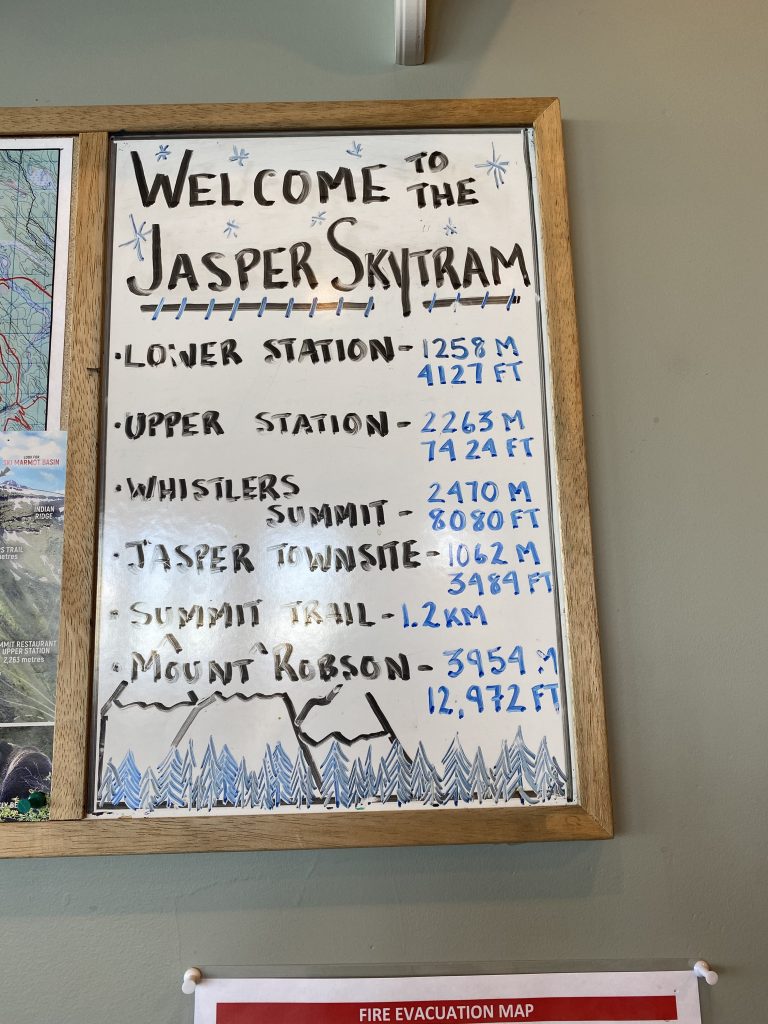 WELCOME TO THE
JASPER SKYTRAM
• LOWER STATION - 1258 M
4127 FT
• UPPER STATION - 2263 M
7424 FT
• WHISTLERS 2470 M
SUMMIT - 8080 FT
• JASPER TOWNSITE - 1062 M
3484 FT
• SUMMIT TRAIL - 1.2 KM
• MOUNT ROBSON - 3954 M
12,972 FT
SKI MARMOT BASIN
INDIAN
RIDGE
TRAIL
metres
RESTAURANT
UPPER STATION
2,263 metres
FIRE EVACUATION MAP